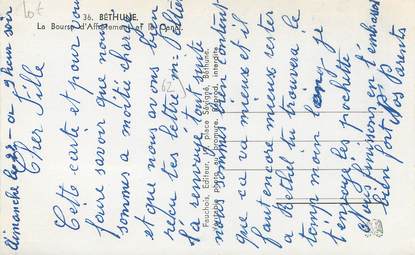 36. BÉTHUNE.
La Bourse d'Affrètement et le Canal
Fauchois, Editeur, 19, place Sévigné, Béthune.
Véritable photo au bromure. Reprod. interdite
62
dimanche le 22 - a 9 heur soir
Cher Fille
Cette carte et pour vous
faire savoir que nous
sommes a moitié chargé
et que nous avons bien
recu tes lettre m.
la renvoye tout suite
nous somme bien contant
que ca va mieux et il
faut encore mieux rester
a Rethel tu trouvera le
temp moin long je
t'envoye les pochette
nous finissons en t'embrassant
bien fort Vos Parents